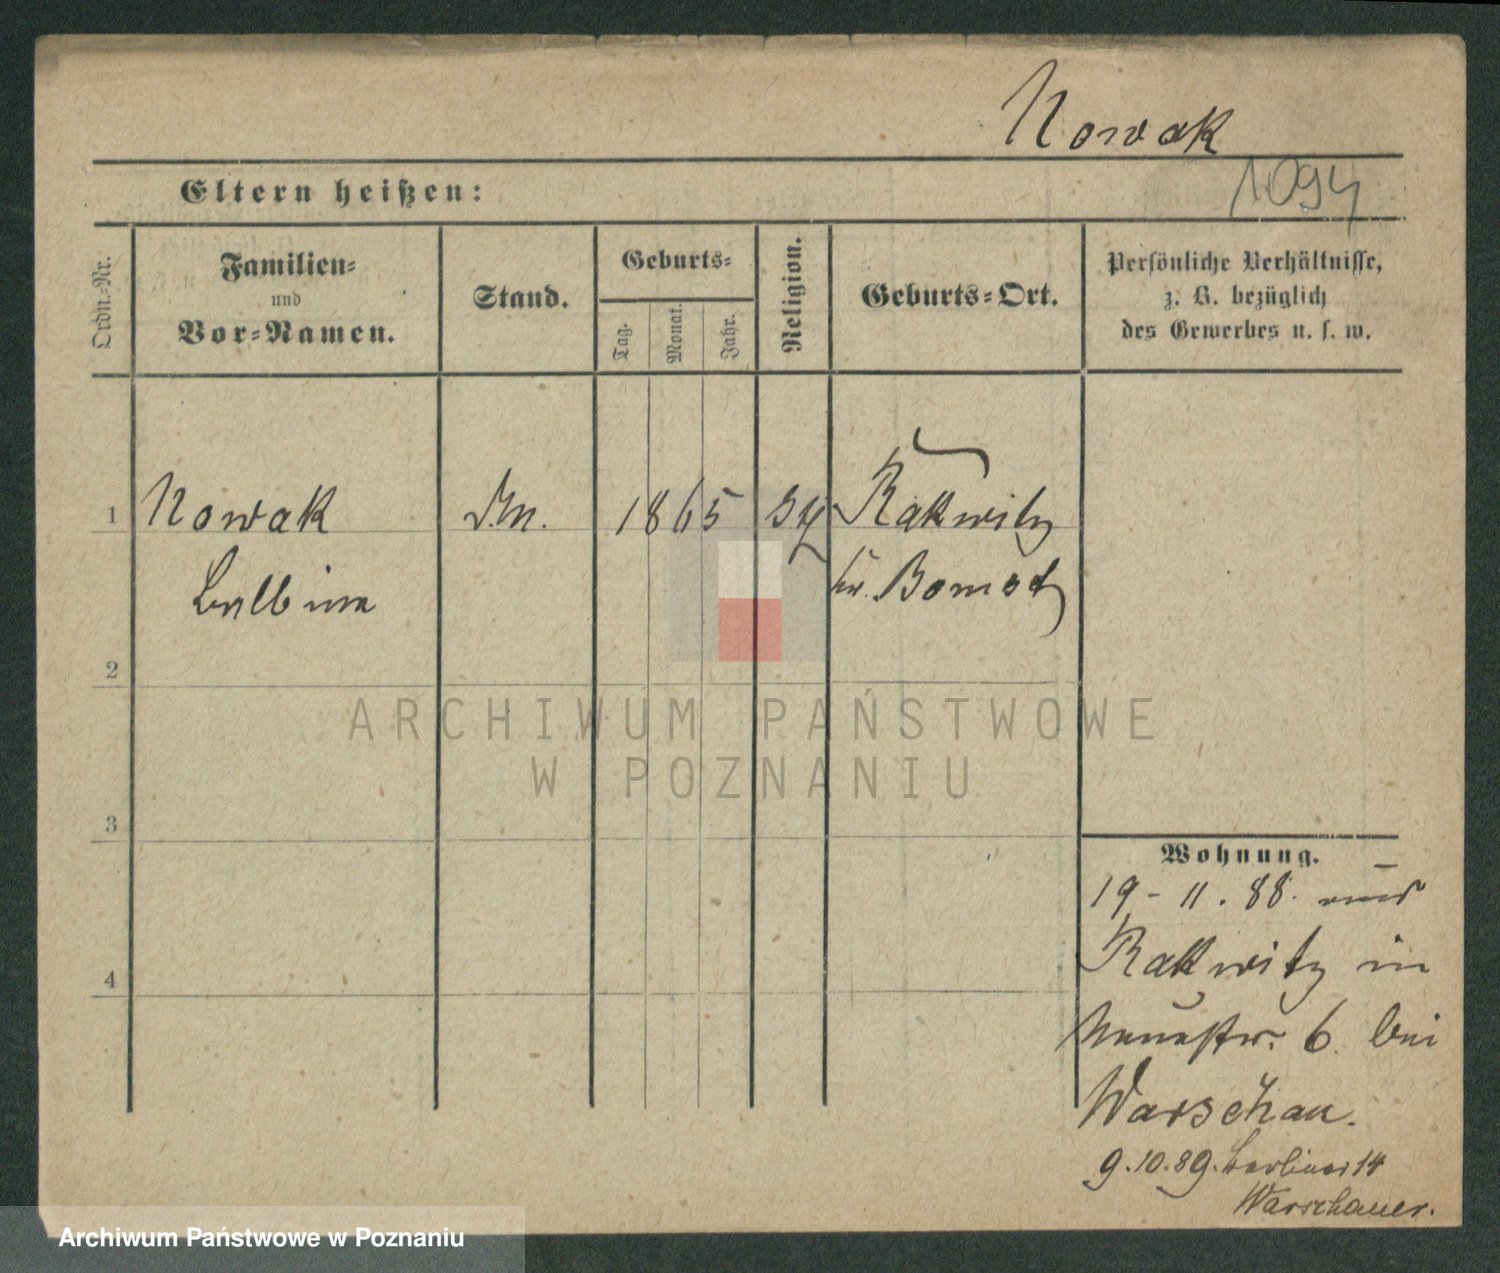 Nowak
1094
Eltern heißen:
Ordn.-Nr.
Familien-
und
Vor-Namen.
Stand.
Geburts-
Tag.
Monat.
Jahr.
Religion.
Geburts-Ort.
Persönliche Verhältnisse,
z. B. bezüglich
des Gewerbes u. s. w.
1 Nowak 1865 Rakwitz
Balbina Kr. Bomst
2
3
4
ARCHIWUM PAŃSTWOWE
W POZNANIU
Wohnung.
19-11.88. aus
Rakwitz in
6. bei
Warschau.
9.10.89. Berliner 14
Warschauer.
Archiwum Państwowe w Poznaniu